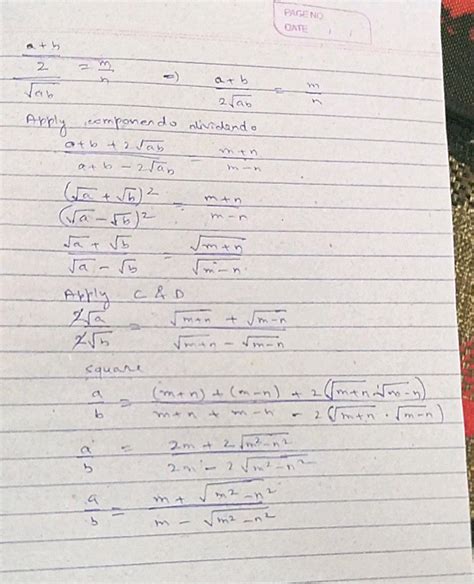 PAGE NO.
DATE / /
(a+b)/2 / √ab = m/n ⇒ (a+b)/(2√ab) = m/n
Apply componendo dividendo
(a+b+2√ab)/(a+b-2√ab) = (m+n)/(m-n)
(√a+√b)²/(√a-√b)² = (m+n)/(m-n)
(√a+√b)/(√a-√b) = √(m+n)/√(m-n)
Apply C & D
2√a/2√b = (√(m+n)+√(m-n))/(√(m+n)-√(m-n))
square
a/b = ((m+n)+(m-n)+2(√(m+n)·√(m-n)))/(m+n+m-n-2(√(m+n)·√(m-n)))
a/b = (2m+2√(m²-n²))/(2m-2√(m²-n²))
a/b = (m+√(m²-n²))/(m-√(m²-n²))